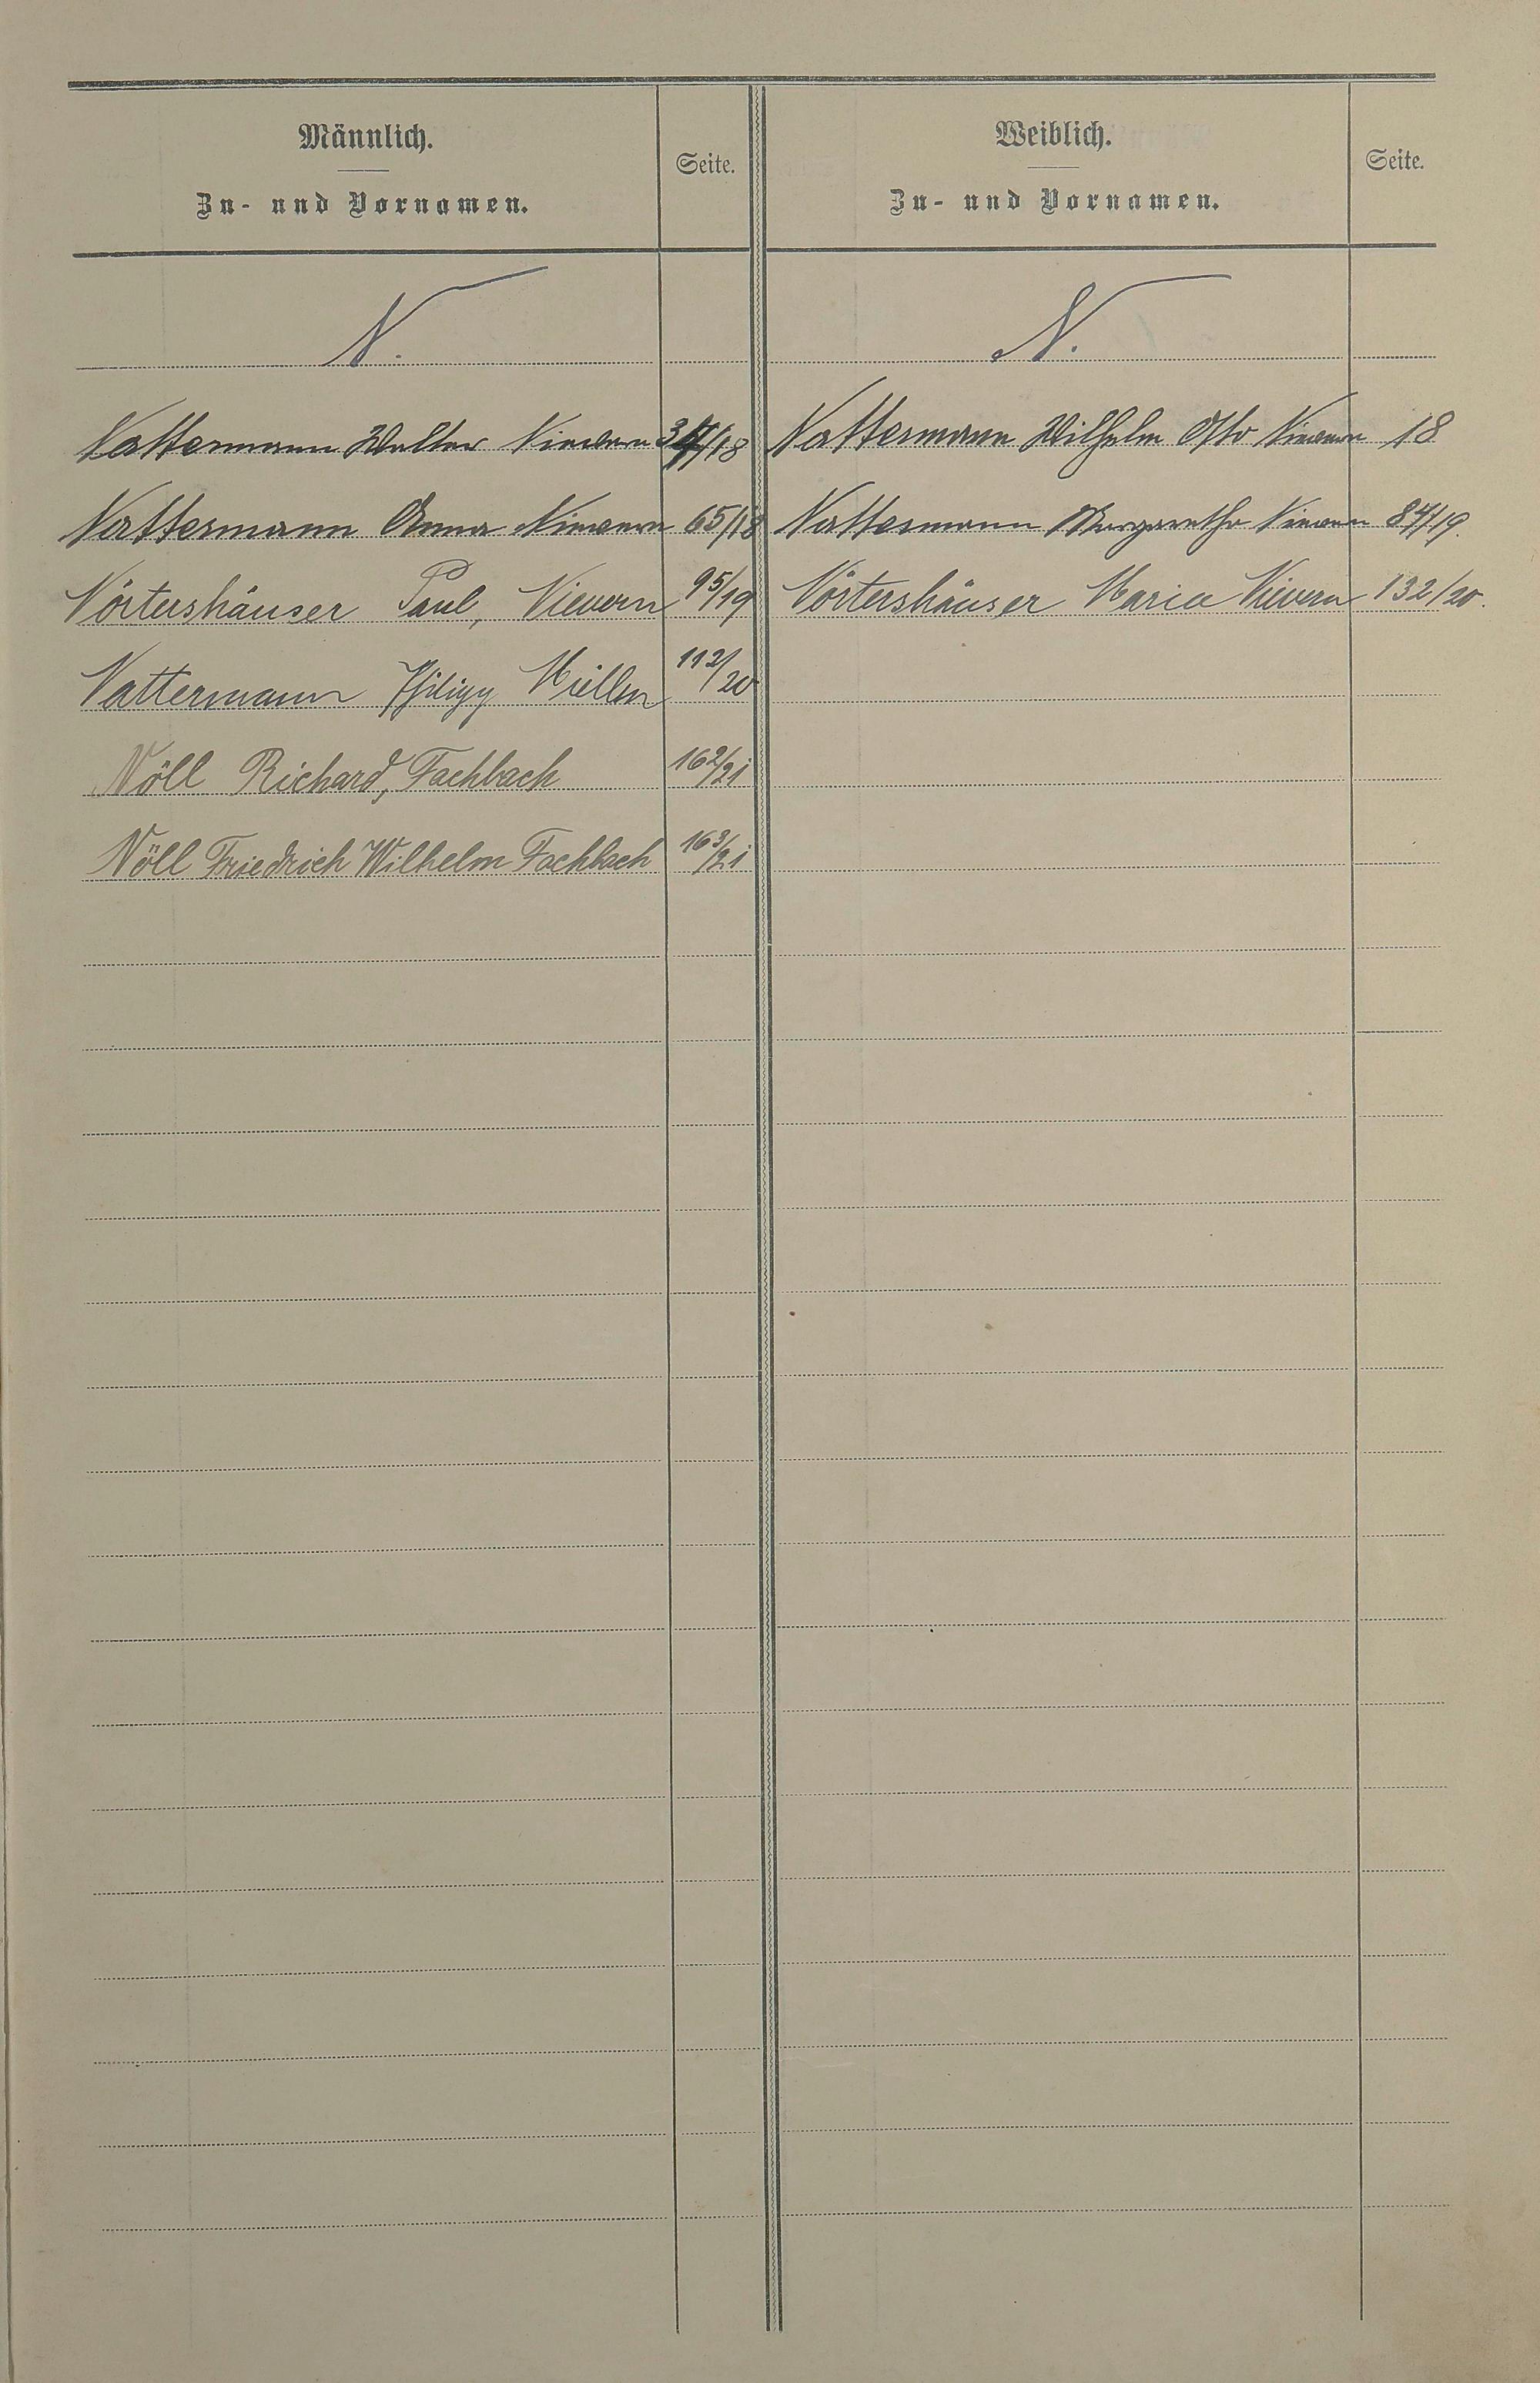 Männlich.
Zu- und Vornamen.
Seite.
Weiblich.
Zu- und Vornamen.
Seite.
N.
N.
Nattermann Walter Nievern /18
Nattermann Wilhelm Otto Nievern 18
Nattermann Anna Nievern 65/18
Nattermann Margaretha Nievern 84/19.
Nörtershäuser Paul, Nievern 95/19
Nörtershäuser Maria Nievern 132/20.
Nattermann Philipp Miellen 112/20
Nöll Richard, Fachbach 162/21
Nöll Friedrich Wilhelm Fachbach 163/21